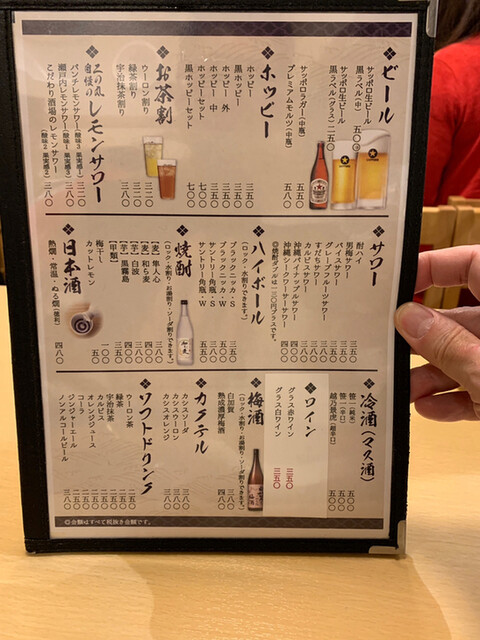 ビール
サッポロ生ビール
黒ラベル(中) 五〇〇
サッポロ生ビール
黒ラベル(グラス) 二五〇
サッポロラガー(中瓶) 五五〇
プレミアムモルツ(中瓶) 五八〇
ホッピー
ホッピー
黒ホッピー
ホッピー 外
ホッピー 中
ホッピーセット
黒ホッピーセット
お茶割
ウーロン割り 三二〇
緑茶割り 三二〇
宇治抹茶割り 三八〇
自慢の
レモンサワー
パンチレモンサワー(酸味3 果実感2)
瀬戸内レモンサワー(酸味2 果実感3)
こだわり酒場のレモンサワー 三八〇
サワー
酎ハイ
男梅サワー
バイスサワー
グレープフルーツサワー
すだちサワー
カルピスサワー
沖縄パイナップルサワー
沖縄シークワーサーサワー
◎焼酎ダブルは一三〇円プラスです。
ハイボール
(ロック・水割りできます。)
ブラックニッカ・S
ブラックニッカ・W
サントリー角瓶・S
サントリー角瓶・W
焼酎
(ロック・水割り・お湯割り・ソーダ割りできます。)
【麦】隼人心
【麦】和ら麦
【芋】白波
【芋】黒霧島
【甲類】
梅干し
カットレモン
日本酒
熱燗・常温・ぬる燗(徳利) 四八〇
冷酒(マス酒)
笹一(純米)
笹一(辛口)
越乃景虎(超辛口)
ワイン
グラス赤ワイン 三五〇
グラス白ワイン 三五〇
梅酒
(ロック・水割り・お湯割り・ソーダ割りできます。)
白加賀
熟成濃厚梅酒
カクテル
カシスソーダ 三八〇
カシスウーロン 三八〇
カシスオレンジ 三八〇
ソフトドリンク
ウーロン茶
緑茶
宇治抹茶
カルピス
オレンジジュース
コーラ
ジンジャーエール
ノンアルコールビール
◎金額はすべて税抜き金額です。